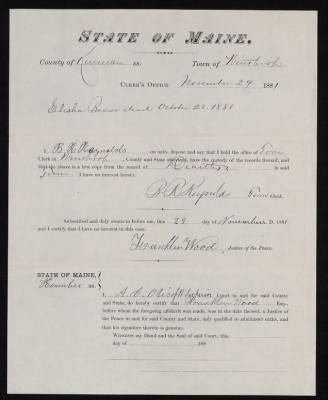 STATE OF MAINE.
County of Kennebec ss. Town of Winthrop
CLERK'S OFFICE November 29 1881
Elisha died October 28. 1881
I, B. R. Reynolds on oath, depose and say that I hold the office of Town
Clerk in Winthrop, County and State aforesaid, have the custody of the records thereof, and
that the above is a true copy from the record of Deaths in said
Town. I have no interest herein.
B. R. Reynolds Town Clerk.
Subscribed and duly sworn to before me, this 29 day of November D. 1881
and I certify that I have no interest in this case.
Franklin Wood, Justice of the Peace.
STATE OF MAINE,
Kennebec ss.
I, A. C. Superior Court in and for said County
and State, do hereby certify that Franklin Wood Esq.,
before whom the foregoing affidavit was made, was at the date thereof, a Justice
of the Peace in and for said County and State, duly qualified to administer oaths, and
that his signature thereto is genuine.
Witness my Hand and the Seal of said Court, this
day of 188